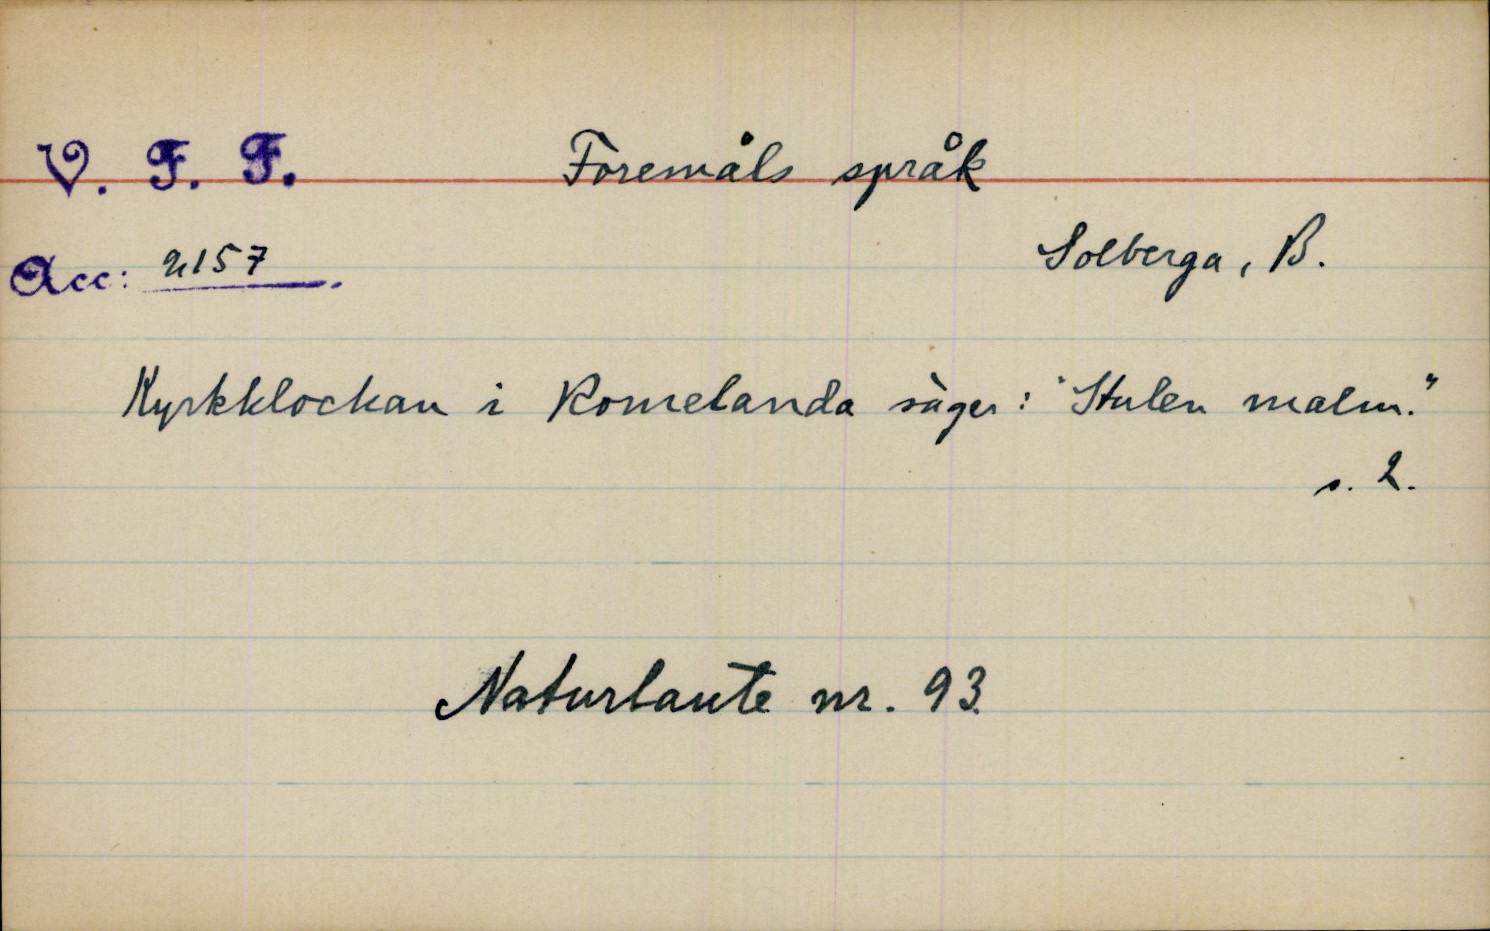 V. F. F. Föremåls språk
Acc: 2157. Solberga, B.
Kyrkklockan i Romelanda säger: "Stulen malm."
s. 2.
Naturlaute nr. 93.